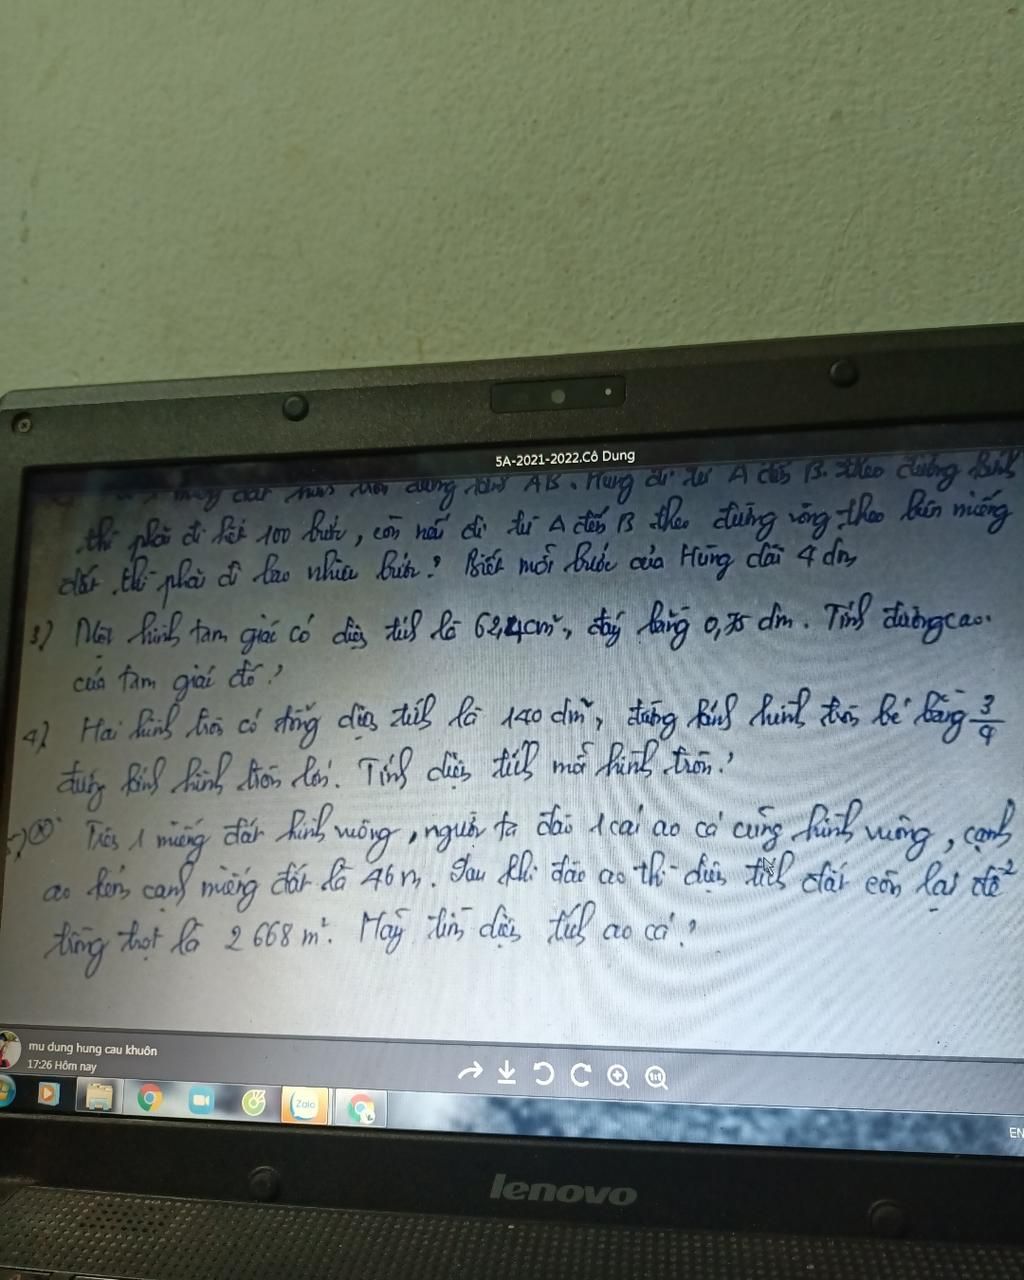 5A-2021-2022.Cô Dung
AB. Hùng đi từ A đến B theo đường kính
thì phải đi hết 100 bước, còn nếu đi từ A đến B theo đường vòng theo miếng
đất thì phải đi bao nhiêu bước? Biết mỗi bước của Hùng dài 4 dm
3) Một hình tam giác có diện tích là cm², đáy bằng dm. Tính đường cao
của tam giác đó?
4) Hai hình tròn có tổng diện tích là 140 dm², đường kính hình tròn bé bằng 3/4
đường kính hình tròn lớn. Tính diện tích mỗi hình tròn?
Trên 1 miếng đất hình vuông, người ta đào 1 cái ao cá cũng hình vuông, cạnh
ao kém cạnh miếng đất là 46 m. Sau khi đào ao thì diện tích đất còn lại để
trồng trọt là 2 668 m². Hãy tính diện tích ao cá?
mu dung hung cau khuôn
17:26 Hôm nay
1:1
Zalo
EN
lenovo